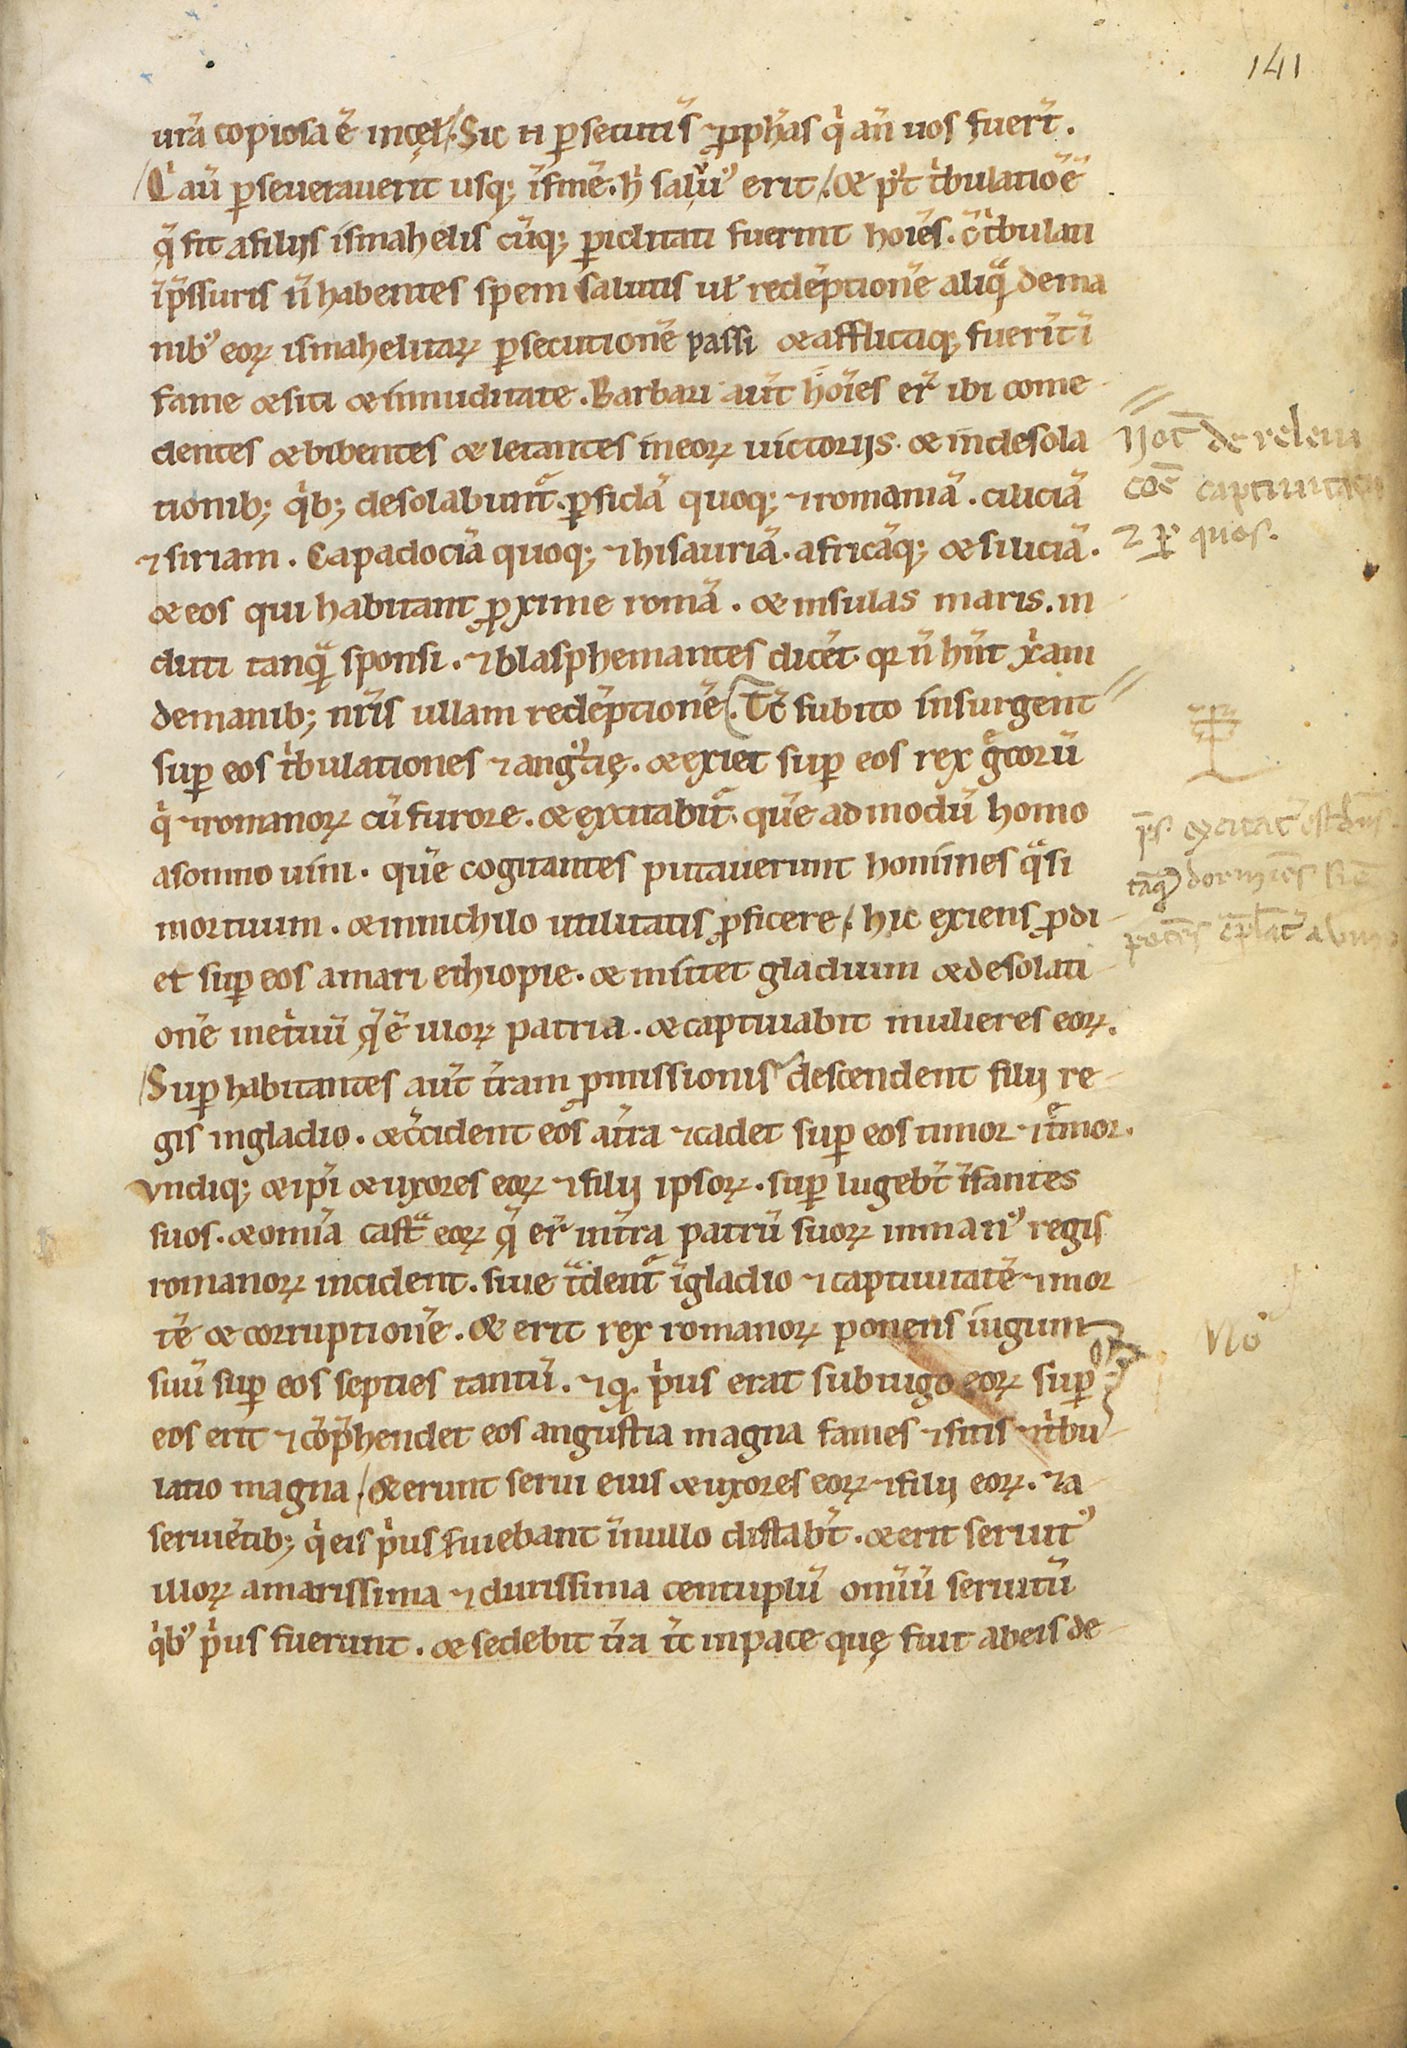 141
urā copiosa ē incęł. Sic n̄ ꝑsecuti s̄ ꝓph̄as q̇ an̄ uos fuer̄t.
Q̇ aū ꝑseuerauerit usq; ī finē. h̄ saluꝰ erit. & pꝰt ṫbulationē
q̄ fit a filijs ismahelis cūq; ꝑiclitati fuerint hoīes. & ṫbulati
ī p̄ssuris n̄ habentes spem salutis uł redēptionē aliquā de ma
nibꝰ eoꝝ ismahelitaꝝ ꝑsecutionē passi & afflictiq; fuerīt ī
fame & siti & in nuditate. Barbari aūt hoīes er̄ ibi come
dentes & bibentes & letantes in eoꝝ uictorijs. & in desola
tionib; q̇b; desolabunt᷑. ꝑsidā quoq; ⁊ romaniā. ciliciā
⁊ siriam. Capadociā quoq; ⁊ hisauriā. africāq; & siliciā.
& eos qui habitant ꝓxime romā. & insulas maris. in
duti tanquā sponsi. ⁊ blasphemantes dicēt. qꝛ n̄ hn̄t xр̄iani
de manib; nr̄is ullam redēptionē. Tc̄ subito insurgent
suꝑ eos ṫbulationes ⁊ angꝰtię. & exiet suꝑ eos rex gͨcorū
q̇ ⁊ romanoꝝ cū furore. & excitabit᷑. quē ad modū homo
a somno uini. quē cogitantes putauerunt homines quasi
mortuum. & in nichilo utilitatis ꝓficere. hic exiens ꝓdi
et suꝑ eos a mari ethiopie. & mittet gladium & desolati
onē in et̄uū q̄ ē illoꝝ patria. & captiuabit mulieres eoꝝ.
Suꝑ habitantes aūt tr̄am ꝓmissionis descendent filij re
gis in gladio. & occident eos a tr̄a ⁊ cadet suꝑ eos timor ⁊ tͤmor.
undiq; & ip̄i & uxores eoꝝ ⁊ filij ipsoꝝ. suꝑ lugebt̄ īfantes
suos. & omīa castᷓ eoꝝ q̄ er̄ in tr̄a patrū suoꝝ in manꝰ regis
romanoꝝ incident. siue tᷓdent᷑ ī gladio ⁊ captiuitatē ⁊ mor
tē & corruptionē. & erit rex romanoꝝ ponens iugum
suū suꝑ eos septies tantū. ⁊ qd̄ ṗus erat sub iugo eoꝝ suꝑ
eos erit ⁊ cōp̄hendet eos angustia magna fames ⁊ sitis ⁊ ṫbu
latio magna. & erunt serui eius & uxores eoꝝ ⁊ filij eoꝝ. ⁊ a
seruiētib; q̇ eis ṗus s̄uiebant ī nullo distabt̄. & erit seruitꝰ
illoꝝ amarissima ⁊ durissima centuplū omiū seruitū
q̇bꝰ ṗus fuerunt. & sedebit tr̄a tc̄ in pace quę fuit ab eis de
Not̄ de releua
cōe captiuitatis
⁊ ꝑ quos.
p̄s. excitat᷑ est dn̄s.
tāq̄ dormiēs
potēs cͣplat᷑ a uino
No